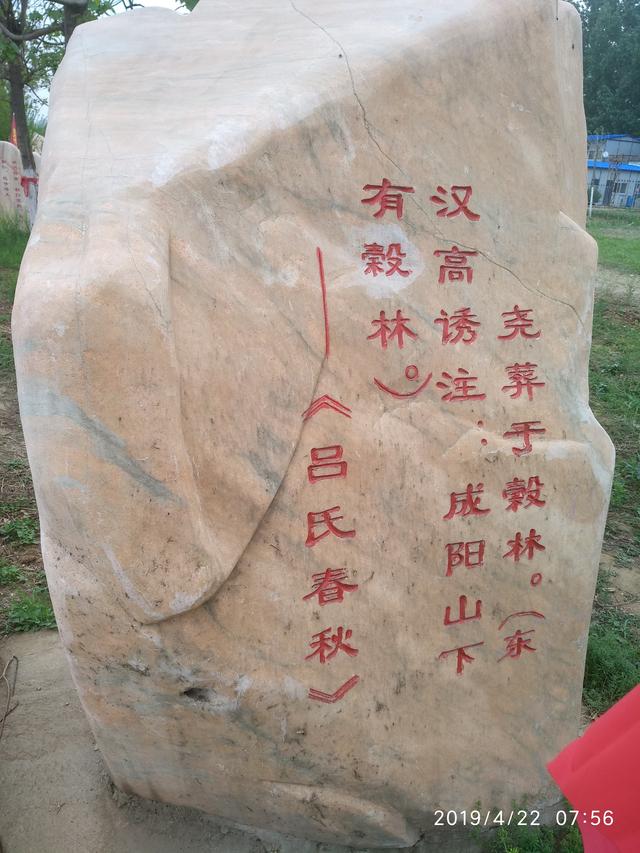 尧葬于榖林。(东
汉高诱注:成阳山下
有榖林。)
——《吕氏春秋》
2019/4/22 07:56